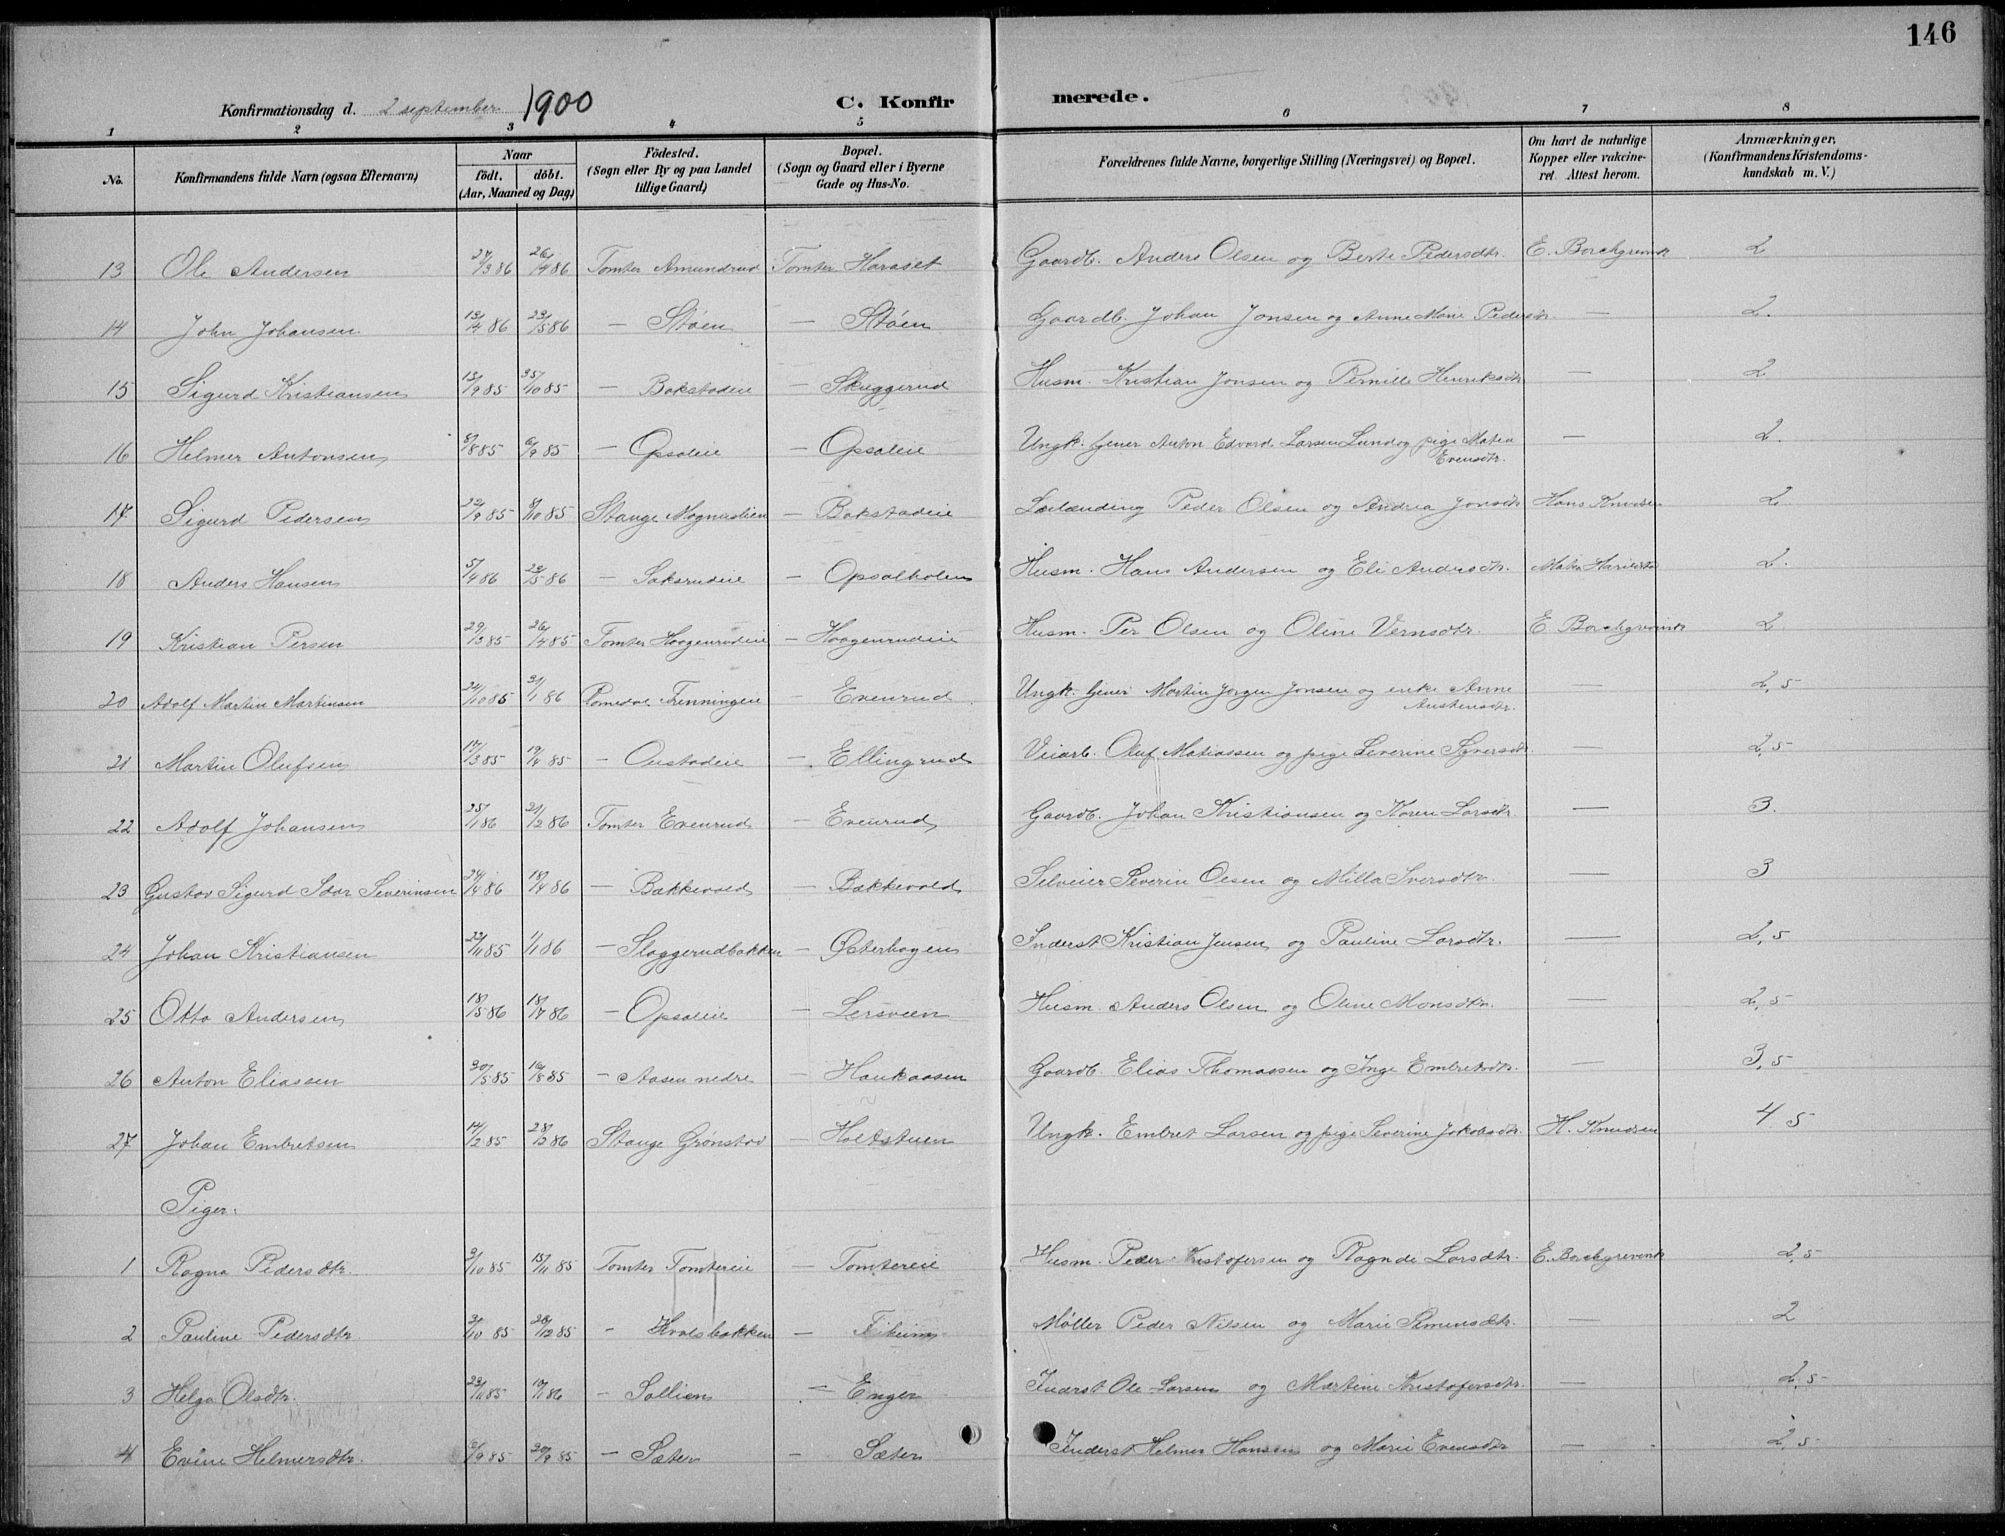 146
Konfirmationsdag d. 2 september 1900 C. Konfirmerede.
1 2 3 4 5 6 7 8
No. Konfirmandens fulde Navn (ogsaa Efternavn) Naar født. døbt. (Aar, Maaned og Dag) Födested. (Sogn eller By og paa Landet tillige Gaard) Bopæl. (Sogn og Gaard eller i Byerne Gade og Hus-No. Forældrenes fulde Navne, borgerlige Stilling (Næringsvei) og Bopæl. Om havt de naturlige Kopper eller vakcineret. Attest herom. Anmærkninger, (Konfirmandens Kristendomskundskab m. V.)
13 Ole Andersen 27/3 86 26/4 86 Tomter Amundrud Tomter Haraset Gaardb. Anders Olsen og Berte Pedersdtr. E. Borchgrevink 2
14 John Johansen 13/4 86 23/5 86 — Støen — Støen Gaardb. Johan Jonsen og Anne Marie Pedersdtr. — 2.
15 Sigurd Kristiansen 13/9 85 25/10 85 — Bakstadeie — Skuggerud Husm. Kristian Jonsen og Pernille Henriksdtr. — 2
16 Helmer Antonsen 9/8 85 6/9 85 — Opsaleie — Opsaleie Ungk. tjener Anton Edvard Larsen Lund og pige Matea Evensdtr. — 2.
17 Sigurd Pedersen 22/9 85 8/10 85 Stange Mognaslien — Bakstadeie Leilænding Peder Olsen og Andrea Jonsdtr. Hans Knudsen 2
18 Anders Hansen 5/4 86 23/5 86 — Saksrudeie — Opsalholen Husm. Hans Andersen og Eli Andersdtr. 2.
19 Kristian Persen 29/3 85 26/4 85 Tomter Haagenrudeie — Haagenrudeie Husm. Per Olsen og Oline Vernsdtr. E. Borchgrevink 2
20 Adolf Martin Martinsen 24/10 85 31/1 86 Romedal Frenningeie — Evenrud Ungk. tjener Martin Jørgen Jonsen og enke Anne Austensdtr. — 2,5
21 Martin Olufsen 17/3 85 19/4 85 — Oustadeie — Ellingrud Veiarb. Oluf Matiassen og pige Severine Syversdtr. — 2,5
22 Adolf Johansen 25/1 86 21/2 86 Tomter Evenrud — Evenrud Gaardb. Johan Kristiansen og Karen Larsdtr. — 3.
23 Gustav Sigurd Idar Severinsen 24/4 86 18/4 86 — Bakkevold — Bakkevold Selveier Severin Olsen og Milla Iversdtr. — 3
24 Johan Kristiansen 22/11 85 1/1 86 — Slaggerudbakken — Østerhagen Inderst Kristian Jensen og Pauline Larsdtr. — 2,5
25 Otto Andersen 18/5 86 18/7 86 — Opsaleie — Lersveen Husm. Anders Olsen og Oline Monsdtr. — 2,5
26 Anton Eliassen 30/5 85 16/8 85 — Aasen nedre — Haukaasen Gaardb. Elias Thomassen og Inge Embretsdtr. — 3,5
27 Johan Embretsen 14/12 85 28/12 86 Stange Grønstad — Holtstuen Ungk. Embret Larsen og pige Severine Jakobsdtr. H. Knudsen 4 5
Piger.
1 Ragna Pedersdtr. 9/10 85 15/11 85 Tomter Tomtereie — Tomtereie Husm. Peder Kristofersen og Ragnde Larsdtr. E. Borchgrevink 2,5
2 Pauline Pedersdtr. 3/10 85 26/12 85 — Kvalsbakken — Møller Peder Nilsen og Marie Simensdtr. — 2
3 Helga Olsdtr. 23/11 85 17/1 86 — Sollien — Enger Inderst Ole Larsen og Martine Kristofersdtr. — 2,5
4 Evine Helmersdtr. 2/9 85 20/9 85 — Sæter — Sæter Inderst Helmer Hansen og Marie Evensdtr. — 2,5